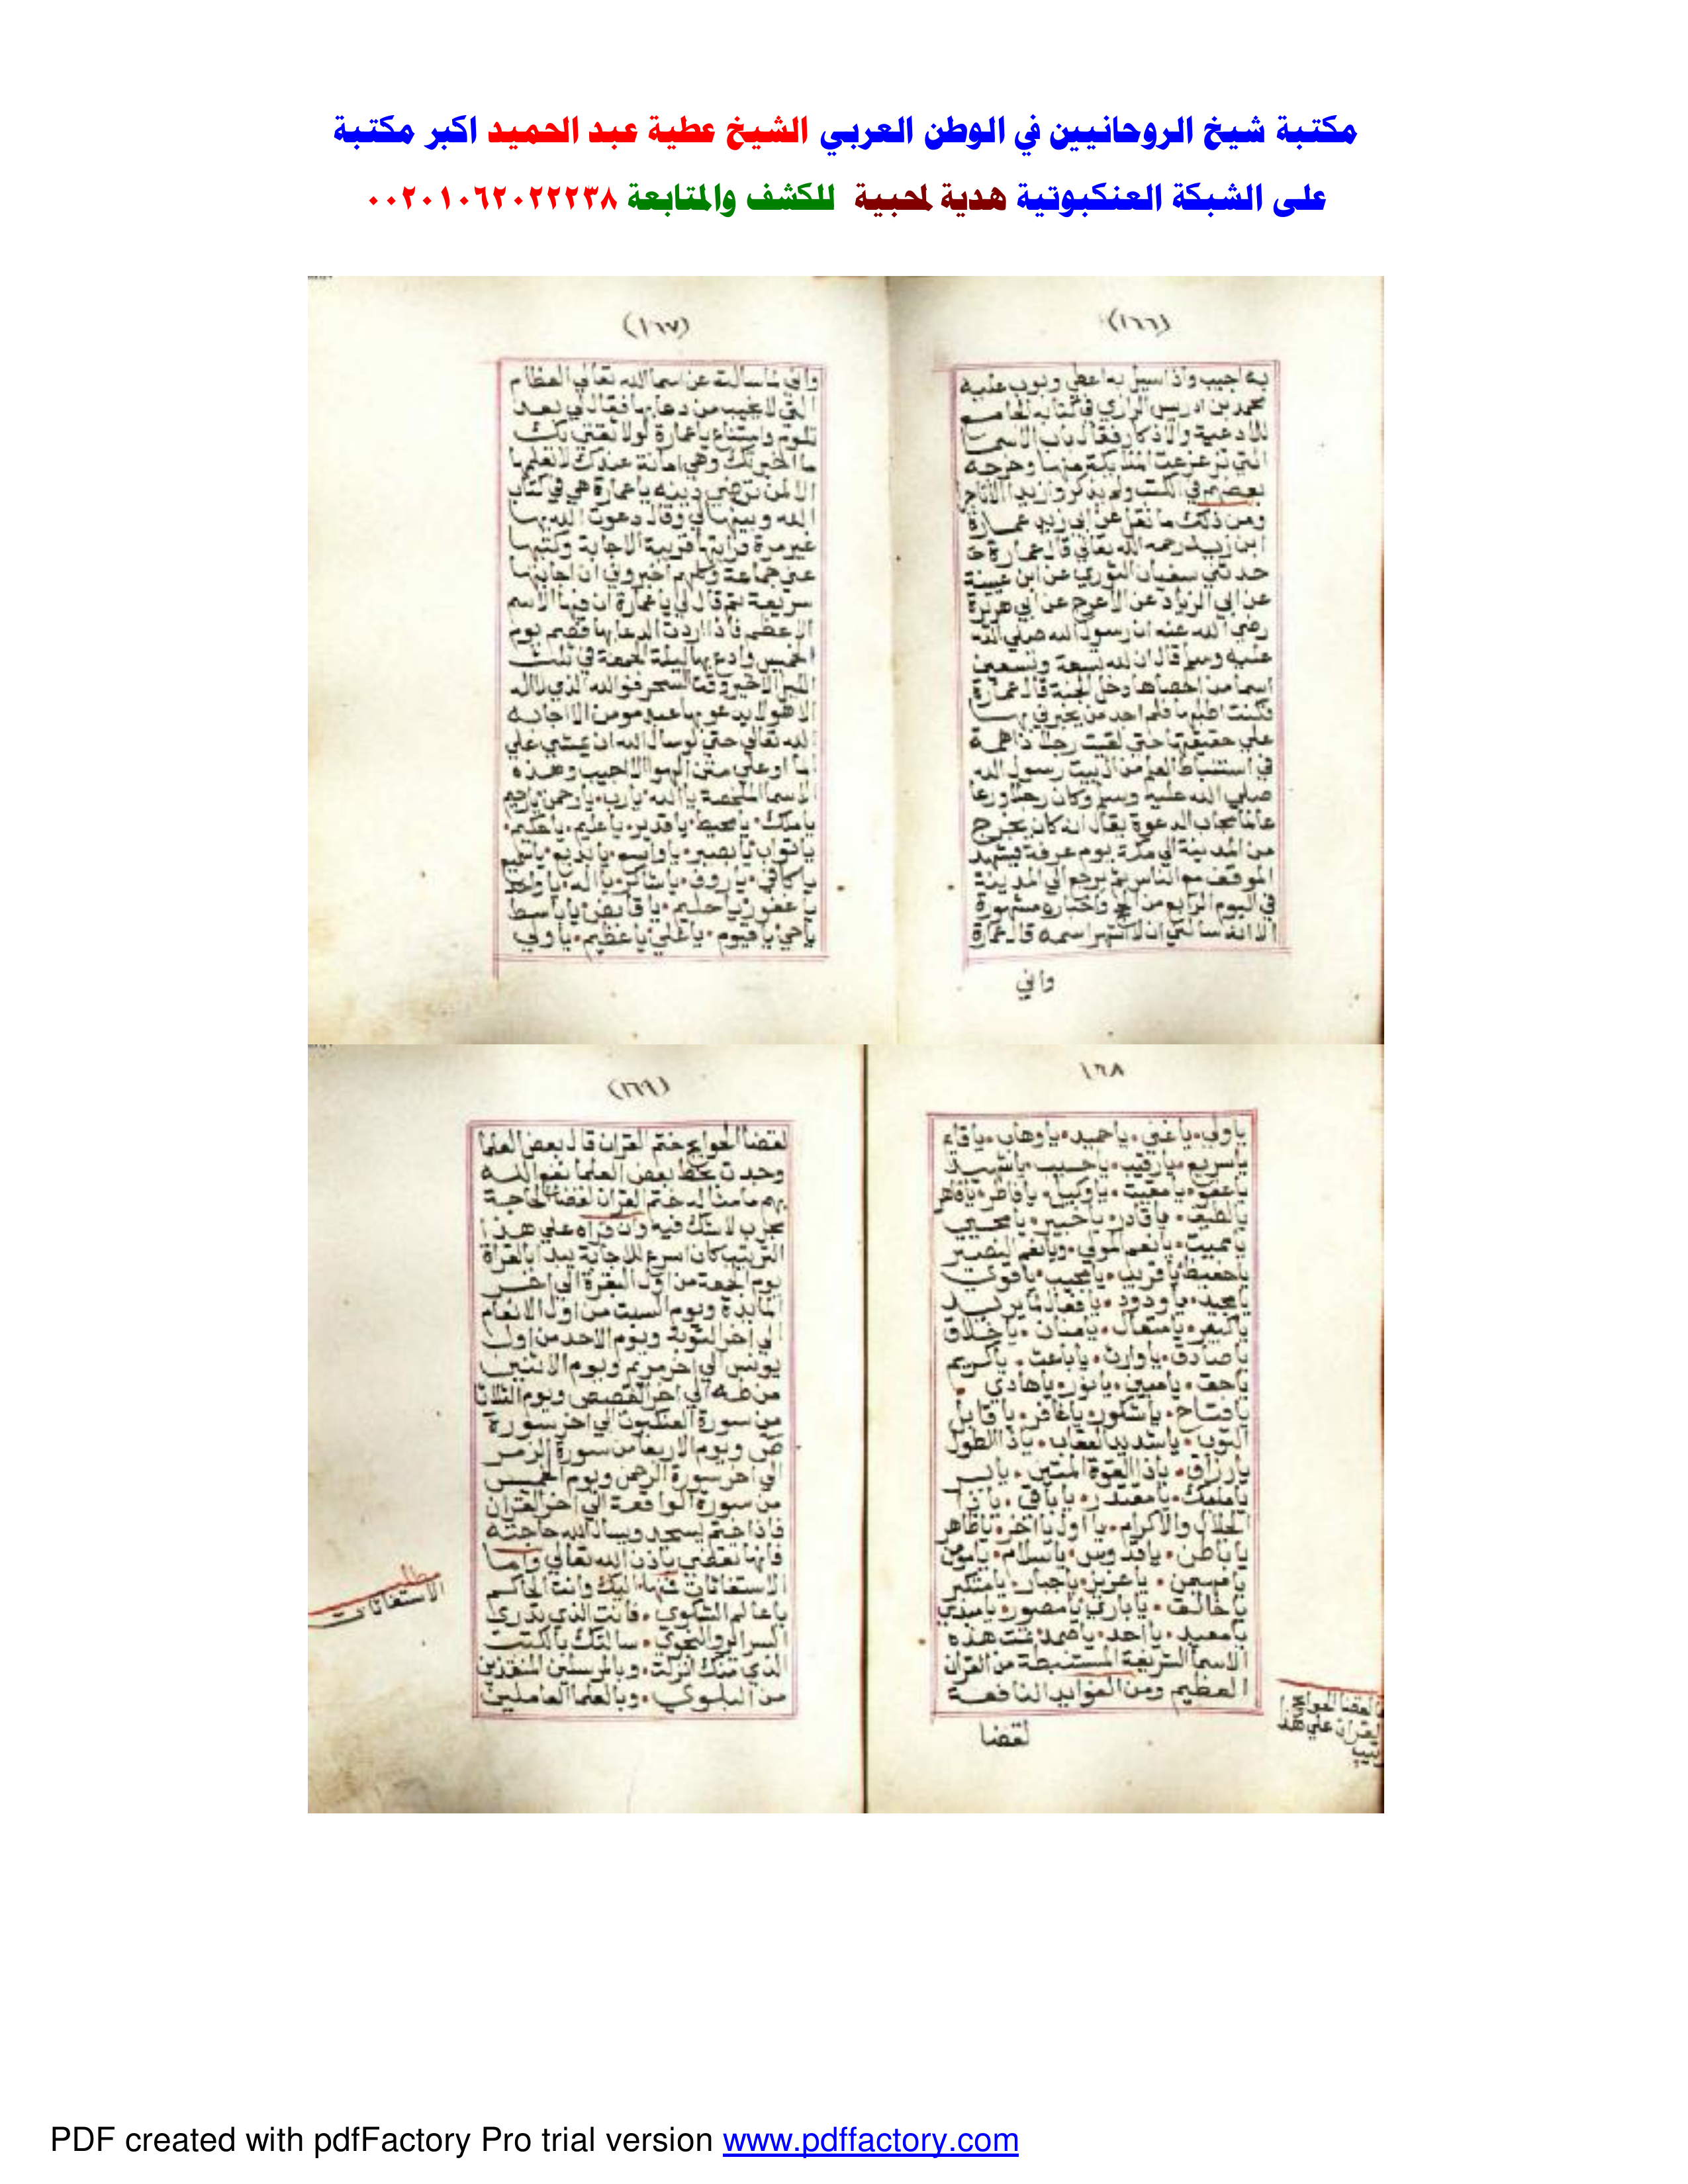 مكتبة شيخ الروحانيين في الوطن العربي الشيخ عطية عبد الحميد اكبر مكتبة
على الشبكة العنكبوتية هدية لمحبية للكشف والمتابعة ٠٠٢٠١٠٦٢٠٢٢٢٣٨
(١٦٦)
به اجيب واذا سيل به اعطي وبوب عليه
محمد بن ادريس الرازي في كتابه الجامع
للادعية والاذكار فقال باب الاسما
التي تزعزعت الملايكة منها وخرجه
بعضهم في الكتب ولم يذكروا زيد
ومن ذلك ما نقل عن ابي زيد عمارة
ابن زيد رحمه الله تعالي قال عمارة
حدثني سفيان الثوري عن ابن عيينة
عن ابي الزناد عن الاعرج عن ابي هريرة
رضي الله عنه ان رسول الله صلي الله
عليه وسلم قال ان لله تسعة وتسعين
اسما من احصاها دخل الجنة قال عمارة
فكنت اطلبها فلم احد من يخبرني بها
علي حقيقتها حتي لقيت رجلا ذا همة
في استنباط العلم من ال بيت رسول الله
صلي الله عليه وسلم وكان رجلا ورعا
عالما مجاب الدعوة يقال انه كان يخرج
من المدينة الي مكة يوم عرفة فيشهد
الموقف مع الناس ثم يرجع الي المدينة
في اليوم الرابع من واخباره مشهورة
الا انه سالني ان لا اشهر اسمه قال عمارة
واني
(١٦٧)
واني سالته عن اسما الله تعالي العظام
التي لا يخيب من دعا بها فقال لي بعد
تلوم وامتناع يا عمارة لولا ثقتي بك
ما اخبرتك وهي امانة عندك لا تعلمها
الا لمن ترضي دينه يا عمارة هي في كتاب
الله وبينها لي وقال دعوت الله بها
غير مرة فرايتها قريبة الاجابة وكتبها
عني جماعة وكلهم اخبروني ان اجابتها
سريعة ثم قال لي يا عمارة ان فيها الاسم
الاعظم فاذا اردت الدعا بها فصم يوم
الخميس وادع بها ليلة الجمعة في ثلث
الليل الاخير وقت السحر فوالله الذي لا اله
الا هو لا يدعو بها عبد مومن الا اجابه
الله تعالي حتي لو سال الله ان يمشي علي
الما او علي متن الهوا لاجيب وهذه
الاسما الملخصة يا الله يارب يارحمن يارحيم
ياملك يامحيط ياقدير ياعليم ياحكيم
ياتواب يابصير ياواسع يابديع ياسميع
ياكافي ياروف ياشاكر يااله ياواحد
ياغفور ياحليم ياقابض ياباسط
ياحي ياقيوم ياعلي ياعظيم ياولي
١٦٨
ياولي ياغني ياحميد ياوهاب
ياسريع يارقيب ياحسيب ياشهيد
ياعفو يامقيت ياوكيل يافاطر ياقاهر
يالطيف ياقادر ياخبير يامحيي
يامميت يانعم المولي ويانعم النصير
ياحفيظ ياقريب يامجيب ياقوي
يامجيد ياودود يافعال لما يريد
ياكبير يامتعال يامنان ياخلاق
ياصادق ياوارث ياباعث ياكريم
ياحق يامبين يانور ياهادي
يافتاح ياشكور ياغافر ياقابل
التوب ياشديد العقاب ياذا الطول
يارزاق ياذا القوة المتين يابر
يامليك يامقتدر ياباقي ياذا
الجلال والاكرام يااول يااخر ياظاهر
ياباطن ياقدوس ياسلام يامومن
يامهيمن ياعزيز ياجبار يامتكبر
ياخالق ياباري يامصور يامبدي
يامعيد يااحد ياصمد تمت هذه
الاسما الشريفة المستنبطة من القران
العظيم ومن الفوايد النافعة
لقضا
لقضا الحوايج
القران علي هذا
(١٦٩)
لقضا الحوايج ختم القران قال بعض العلما
وجدت بخط بعض العلما نفع الله
بهم ما مثاله ختم القران لقضا الحاجة
مجرب لا شك فيه وان قراه علي هذا
الترتيب كان اسرع للاجابة يبدا بالقراة
يوم الجمعة من اول البقرة الي اخر
المايدة ويوم السبت من اول الانعام
الي اخر التوبة ويوم الاحد من اول
يونس الي اخر مريم ويوم الاثنين
من طه الي اخر القصص ويوم الثلاثا
من سورة العنكبوت الي اخر سورة
ص ويوم الاربعا من سورة الزمر
الي اخر سورة الرحمن ويوم الخميس
من سورة الواقعة الي اخر القران
فاذا ختم يسجد ويسال الله حاجته
فانها تقضي باذن الله تعالي واما
الاستغاثات فمنها اليك وانت الحاكم
ياعالم الشكوي فانت الذي تدري
السراير والنجوي سالتك بالكتب
الذي منك انزلت وبالمرسلين المنقذين
من البلوي وبالعلما العاملين
مطلب
الاستغاثات
PDF created with pdfFactory Pro trial version www.pdffactory.com